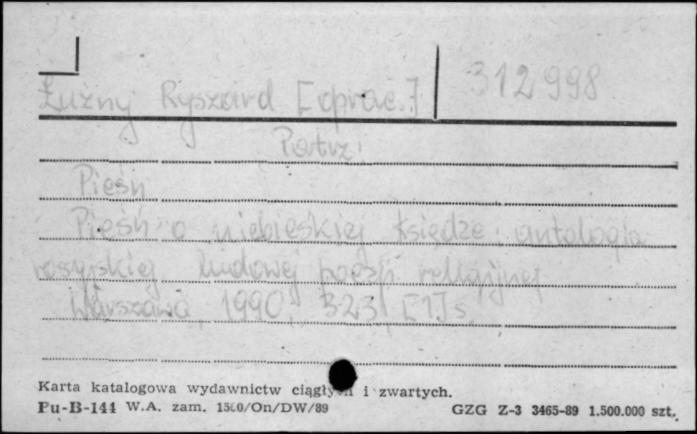 Łużny Ryszard [oprac.] 312998
Patrz:
Pieśń
Pieśń o niebieskiej księdze: antologia
rosyjskiej ludowej poezji religijnej
Warszawa, 1990, 323, [1] s.
Karta katalogowa wydawnictw ciągłych i zwartych.
Pu-B-144 W.A. zam. 1560/On/DW/89 GZG Z-3 3465-89 1.500.000 szt.